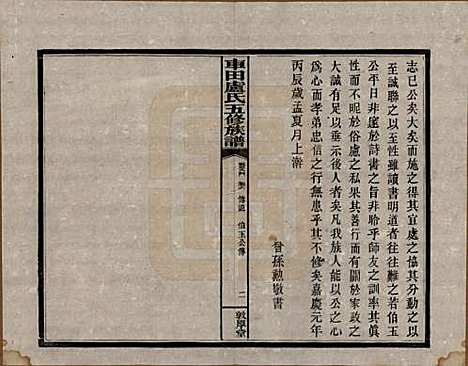 志已公矣大矣而施之以得其宜處之協其分動之以
至誠聯之以見雖讀書明道者往往難之若伯玉
公平日非庭於詩書之旨非聆乎師友之訓率其眞
性而不昵於俗慮之私果其善行而有關於家政之
大誠有足以垂示後人者矣凡我族人能以公之心
爲心而孝弟忠信之行無愈乎其不修矣嘉慶元年
丙辰歲孟夏月上澣
曾孫勳敬書
車田盧氏五修族譜
傳 伯玉公傳
二
敦厚堂